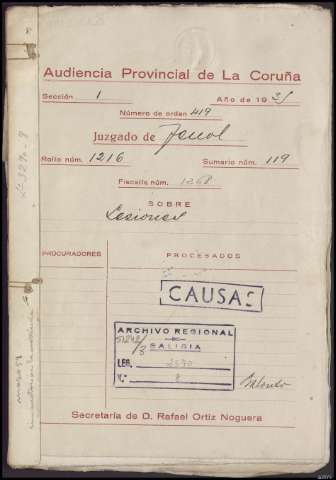 Audiencia Provincial de La Coruña
Sección 1 Año de 19
Número de orden 419
Juzgado de Ferrol
Rollo núm. 1216 Sumario núm. 119
Fiscalía núm. 1268
SOBRE
Lesiones
PROCURADORES PROCESADOS
CAUSAS
ARCHIVO REGIONAL
DE
GALICIA
LEG. 2570
N.º
Secretaría de D. Rafael Ortiz Noguera